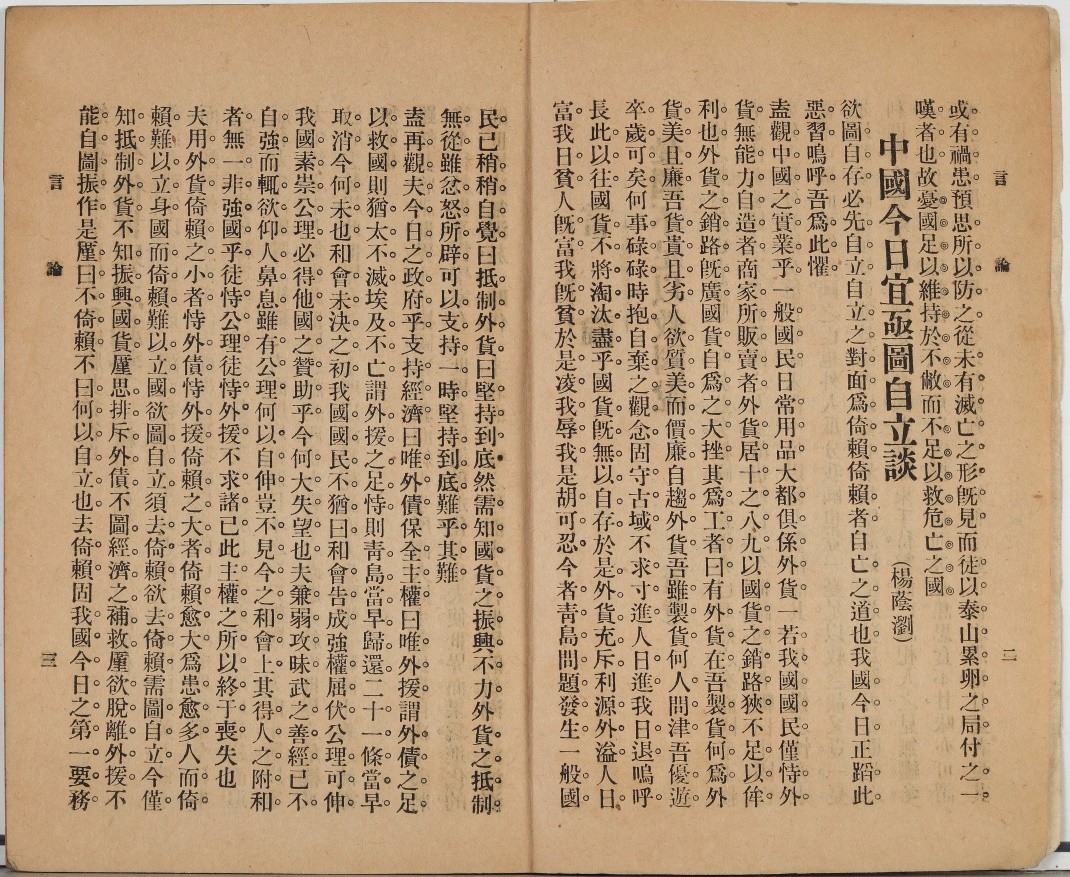 言論 二
或有禍患預思所以防之從未有滅亡之形旣見而徒以泰山累卵之局付之一
嘆者也故憂國足以維持於不敝而不足以救危亡之國
中國今日宜亟圖自立談
(楊蔭瀏)
欲圖自存必先自立自立之對面爲倚賴倚賴者自亡之道也我國今日正蹈此
惡習嗚呼吾爲此懼
盍觀中國之實業乎一般國民日常用品大都俱係外貨一若我國國民僅恃外
貨無能力自造者商家所販賣者外貨居十之八九以國貨之銷路狹不足以侔
利也外貨之銷路旣廣國貨自爲之大挫其爲工者曰有外貨在吾製貨何爲外
貨美且廉吾貨貴且劣人欲質美而價廉自趨外貨吾雖製貨何人問津吾優遊
卒歲可矣何事碌碌時抱自棄之觀念固守古域不求寸進人日進我日退嗚呼
長此以往國貨不將淘汰盡乎國貨旣無以自存於是外貨充斥利源外溢人日
富我日貧人旣富我旣貧於是凌我辱我是胡可忍今者靑島問題發生一般國
民已稍稍自覺曰抵制外貨曰堅持到底然需知國貨之振興不力外貨之抵制
無從雖忿怒所辟可以支持一時堅持到底難乎其難
盍再觀夫今日之政府乎支持經濟曰唯外債保全主權曰唯外援謂外債之足
以救國則猶太不滅埃及不亡謂外援之足恃則靑島當早歸還二十一條當早
取消今何未也和會未決之初我國國民不猶曰和會告成強權屈伏公理可伸
我國素崇公理必得他國之贊助乎今何大失望也夫兼弱攻昧武之善經已不
自強而輒欲仰人鼻息雖有公理何以自伸豈不見今之和會上其得人之附和
者無一非強國乎徒恃公理徒恃外援不求諸己此主權之所以終于喪失也
夫用外貨倚賴之小者恃外債恃外援倚賴之大者倚賴愈大爲患愈多人而倚
賴難以立身國而倚賴難以立國欲圖自立須去倚賴欲去倚賴需圖自立今僅
知抵制外貨不知振興國貨厪思排斥外債不圖經濟之補救厪欲脫離外援不
能自圖振作是厪曰不倚賴不曰何以自立也去倚賴固我國今日之第一要務
言論 三